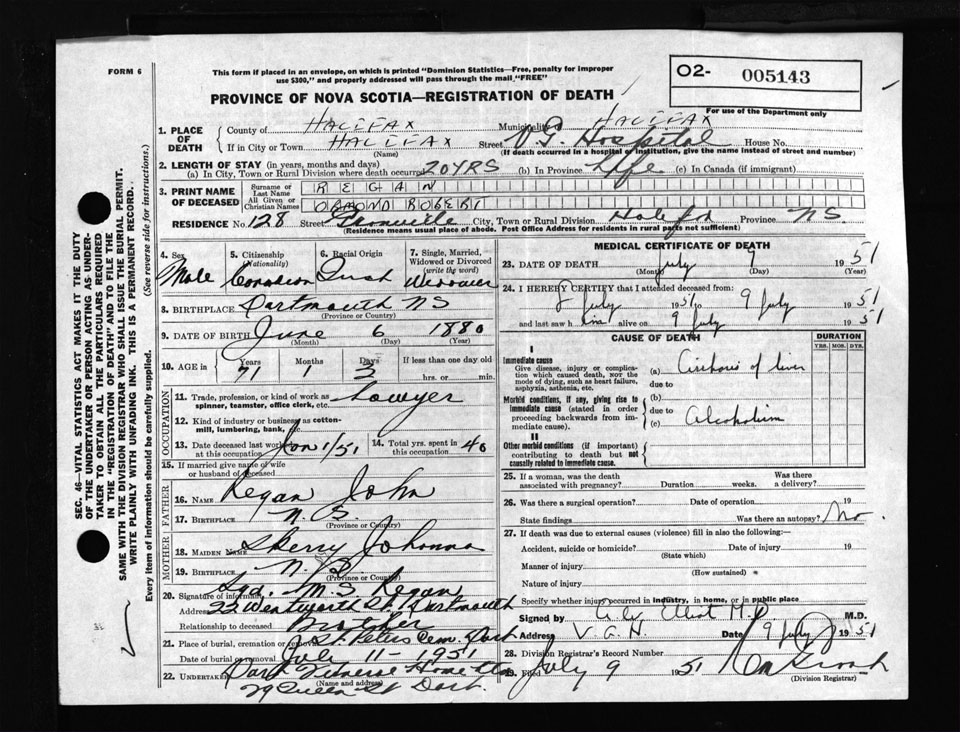 FORM 6
This form if placed in an envelope, on which is printed "Dominion Statistics—Free, penalty for improper
use $300," and properly addressed will pass through the mail "FREE"
O2- 005143
PROVINCE OF NOVA SCOTIA—REGISTRATION OF DEATH
For use of the Department only
1. PLACE OF DEATH
County of HALIFAX Municipality HALIFAX
If in City or Town HALIFAX Street V.G. Hospital House No.
(Name) (If death occurred in a hospital or institution, give the name instead of street and number)
2. LENGTH OF STAY (in years, months and days)
(a) In City, Town or Rural Division where death occurred 20 YRS (b) In Province Life (c) In Canada (if immigrant)
3. PRINT NAME OF DECEASED
Surname or Last Name REGAN
All Given or Christian Names ORMOND ROBERT
RESIDENCE No. 128 Street Granville City, Town or Rural Division Halifax Province N.S.
(Residence means usual place of abode. Post Office Address for residents in rural parts not sufficient)
4. Sex Male
5. Citizenship (Nationality) Canadian
6. Racial Origin Irish
7. Single, Married, Widowed or Divorced (write the word) Widower
8. BIRTHPLACE Dartmouth NS
(Province or Country)
9. DATE OF BIRTH June 6 1880
(Month) (Day) (Year)
10. AGE in Years 71 Months 1 Days 3 If less than one day old
hrs. or min.
OCCUPATION
11. Trade, profession, or kind of work as spinner, teamster, office clerk, etc. Lawyer
12. Kind of industry or business as cotton-mill, lumbering, bank, etc.
13. Date deceased last worked at this occupation Jan 1/51
14. Total yrs. spent in this occupation 40
15. If married give name of wife or husband of deceased
FATHER
16. NAME Regan John
17. BIRTHPLACE N.B.
(Province or Country)
MOTHER
18. MAIDEN NAME Skerry Johanna
19. BIRTHPLACE N.B.
(Province or Country)
20. Signature of informant M.S. Regan
Address 22 Wentworth St. Dartmouth
Relationship to deceased Brother
21. Place of burial, cremation or removal St. Peters Cem. Dart
Date of burial or removal July 11 - 1951
22. UNDERTAKER Dart Funeral Home
(Name and address)
29 Queen St Dart.
MEDICAL CERTIFICATE OF DEATH
23. DATE OF DEATH July 9 1951
(Month) (Day) (Year)
24. I HEREBY CERTIFY that I attended deceased from:
8 July 1951 to 9 July 1951
and last saw him alive on 9 July 1951
CAUSE OF DEATH
DURATION
YRS. MOS. DYS.
I
Immediate cause
Give disease, injury or complication which caused death, NOR the mode of dying, such as heart failure, asphyxia, asthenia, etc.
(a) Cirrhosis of liver
due to
Morbid conditions, if any, giving rise to immediate cause (stated in order proceeding backwards from immediate cause).
(b)
due to
(c) Alcoholism
II
Other morbid conditions (if important) contributing to death but not causally related to immediate cause.
25. If a woman, was the death associated with pregnancy? Duration weeks. Was there a delivery?
26. Was there a surgical operation? Date of operation 19
State findings Was there an autopsy? No.
27. If death was due to external causes (violence) fill in also the following:
Accident, suicide or homicide? Date of injury 19
(State which)
Manner of injury
(How sustained)
Nature of injury
Specify whether injury occurred in industry, in home, or in public place
Signed by Elliot M.D. M.D.
Address V.G.H. Date 9 July 1951
28. Division Registrar's Record Number
29. Filed July 9 1951
(Division Registrar)
SEC. 46—VITAL STATISTICS ACT MAKES IT THE DUTY
OF THE UNDERTAKER OR PERSON ACTING AS UNDERTAKER
TO OBTAIN ALL THE PARTICULARS REQUIRED
IN THE "REGISTRATION OF DEATH" AND TO FILE THE
SAME WITH THE DIVISION REGISTRAR WHO SHALL ISSUE THE BURIAL PERMIT.
WRITE PLAINLY WITH UNFADING INK. THIS IS A PERMANENT RECORD.
Every item of information should be carefully supplied. (See reverse side for instructions.)